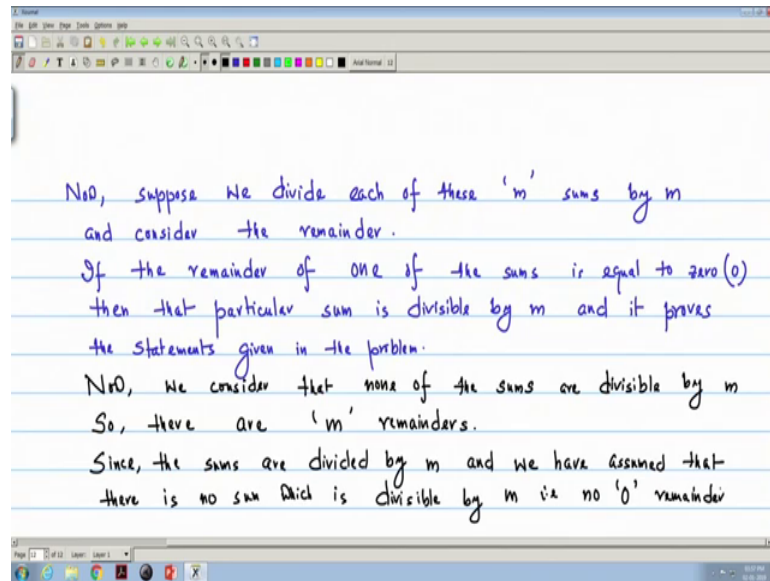 File Edit View Page Tools Options Help
Arial Normal 12
Now, suppose we divide each of these 'm' sums by m
and consider the remainder.
If the remainder of one of the sums is equal to zero (0)
then that particular sum is divisible by m and it proves
the statements given in the problem.
Now, we consider that none of the sums are divisible by m
So, there are 'm' remainders.
Since, the sums are divided by m and we have assumed that
there is no sum which is divisible by m i.e no '0' remainder
Page 12 of 12 Layer: Layer 1